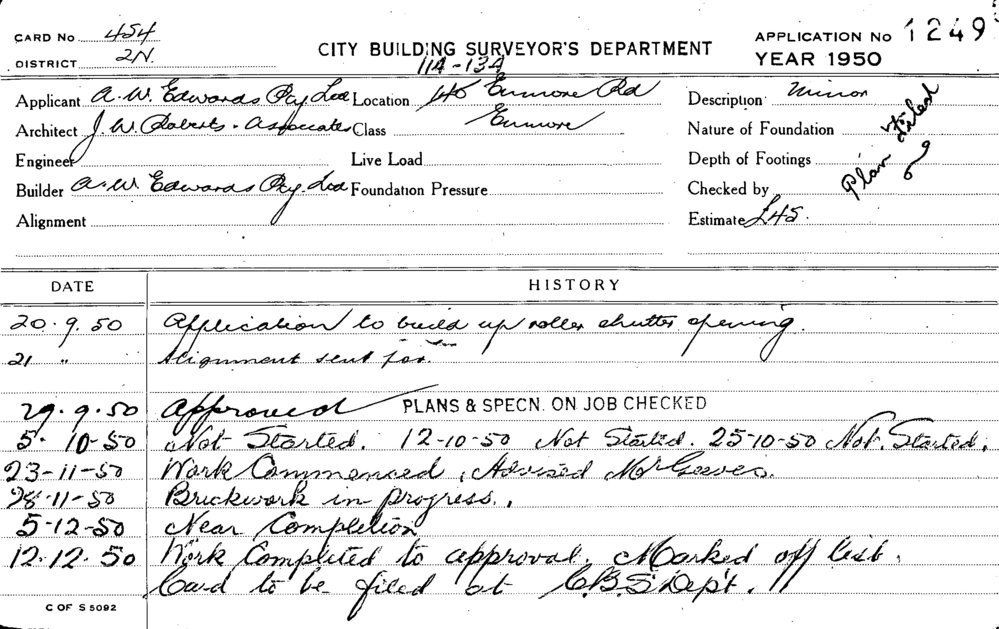 CARD No 454
DISTRICT 2N.
CITY BUILDING SURVEYOR'S DEPARTMENT
APPLICATION No 1249
YEAR 1950
114-134
Applicant A. W. Edwards Pty Ltd Location Enmore Rd
Description Minor
Architect J. W. Roberts. Associates Class Enmore
Nature of Foundation
Plan
Engineer Live Load
Depth of Footings
Builder A. W. Edwards Pty Ltd Foundation Pressure
Checked by
Alignment
Estimate £45.
DATE HISTORY
20.9.50 Application to build up roller shutter opening.
21 " Alignment sent for.
29.9.50 Approved PLANS & SPECN. ON JOB CHECKED
5-10-50 Not Started. 12-10-50 Not Started. 25-10-50 Not. Started.
23-11-50 Work Commenced, Advised Mr
28-11-50 Brickwork in progress.
5-12-50 Near Completion
12.12.50 Work Completed to approval. Marked off list.
Card to be filed at C.B.S Dept.
C OF S 5092